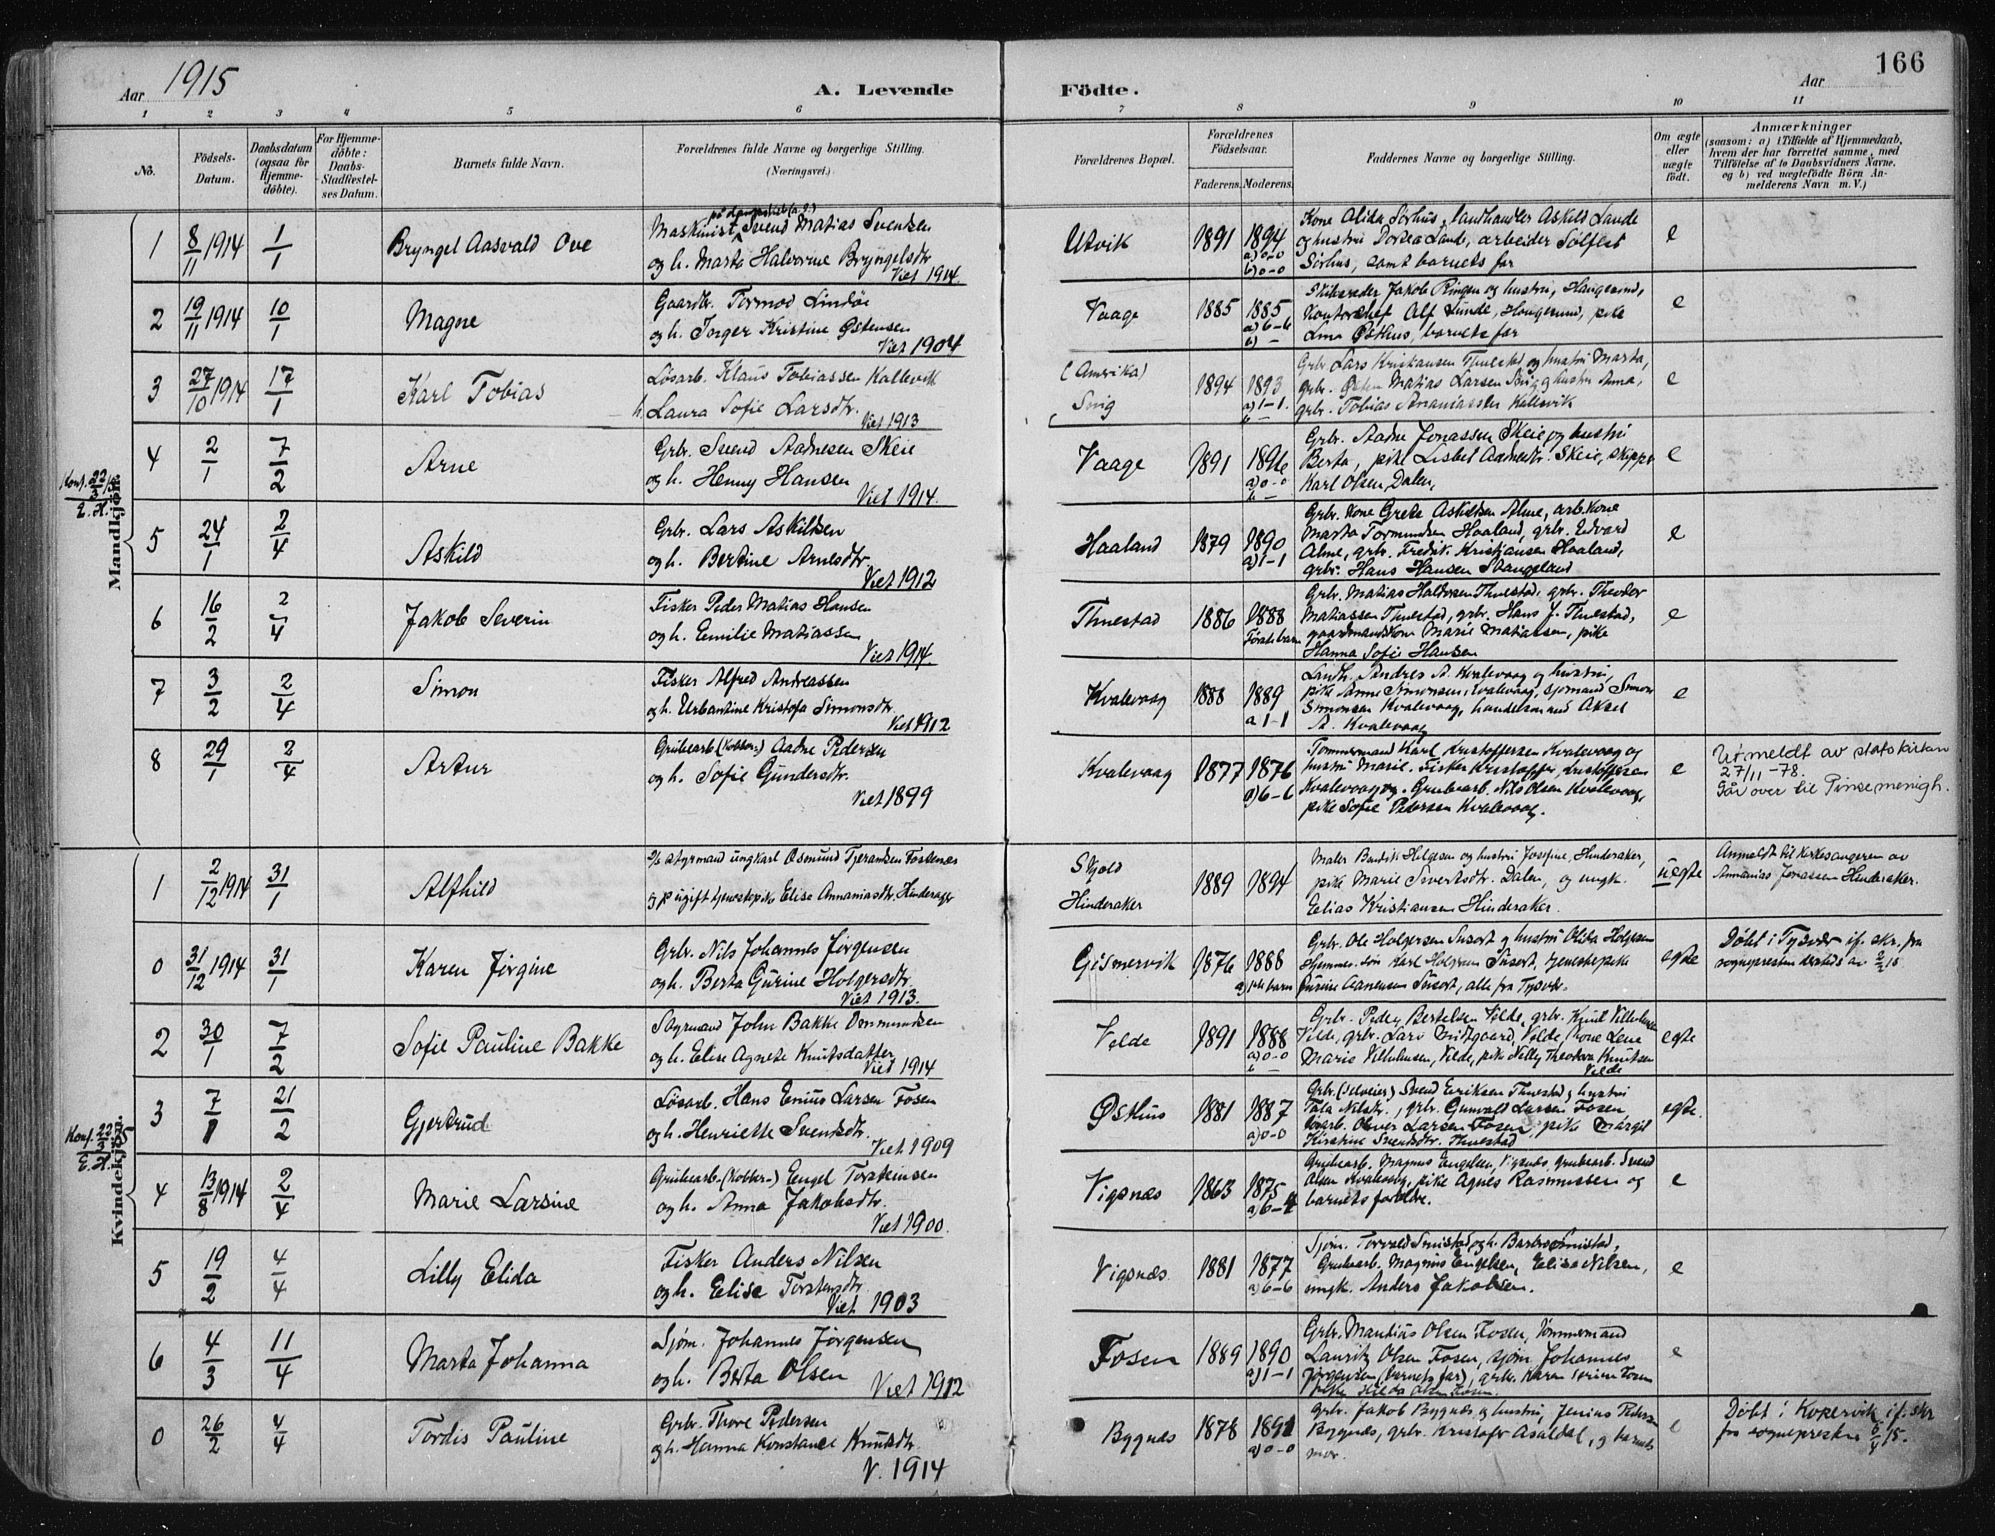 166
Aar 1915
A. Levende Födte.
Aar
1 2 3 4 5 6 7 8 9 10 11
No.
Födsels-Datum.
Daabsdatum (ogsaa for Hjemmedöbte).
For Hjemmedöbte: Daabs-Stadfæstelses Datum.
Barnets fulde Navn.
Forældrenes fulde Navne og borgerlige Stilling. (Næringsvei.)
Forældrenes Bopæl.
Forældrenes Födselsaar.
Faderens. Moderens.
Faddernes Navne og borgerlige Stilling.
Om ægte eller uægte födt.
Anmærkninger
(saasom: a) i Tilfælde af Hjemmedaab, hvem der har forrettet samme, med Tilföielse af to Daabsvidners Navne, og b) ved uægtefödte Börn Anmelderens Navn m. V.)
Mandkjøn.
1 8/11 1914 1/1 Bryngel Aasvald Ove
Maskinist Svend Matias Svendsen
og h. Marta Halvorine Bryngelsdtr
Viet 1914.
Utvik 1891 1894 a) 0-0 b) 0-0
Kone Alida Sørhus, landhandler Askild Lande
og hustru Dortea Lande, arbeider Sølfest
Sørhus, samt barnets far
e
2 19/11 1914 10/1 Magne
Gaardbr. Tormod Lindøe
og h. Inger Kristine Østensen
Viet 1904
Vaage 1885 1885 a) 6-6 b) -
Skibsreder Jakob Ringen og hustru, Haugesund,
Kontorchef Alf Lunde, Haugesund, pike
Lina Østhus, barnets far
e
3 27/10 1914 17/1 Karl Tobias
Løsarb. Klaus Tobiassen Kallevik
h. Laura Sofie Larsdtr.
Viet 1913
(Amerika)
Snig 1894 1893 a) 1-1.
Grbr. Lars Kristiansen Thuestad og hustru Marta,
grbr. Østen Matias Larsen Snig og hustru Anna,
grbr. Tobias Ananiassen Kallevik
e
4 2/1 7/2 Arne
Grbr. Svend Aadnesen Skeie
og h. Henny Hansen
Viet 1914.
Vaage 1891 1896 a) 0-0
Grbr. Aadne Jonassen Skeie og hustru
Berta, pike Lisbet Aadnesdtr. Skeie, skipper
Karl Olsen, Dalen,
e
5 24/1 2/4 Askild
Grbr. Lars Askildsen
og h. Bertine Arnesdtr
Viet 1912
Haaland 1879 1890 a) 1-1
Grbr. Kone Grete Askildsen Alme, arb. kone
Marta Tormundsen Haaland, grbr. Edvard
Alme, grbr. Fredrik Kristiansen Haaland,
grbr. Hans Hansen Stangeland
e
6 16/2 2/4 Jakob Severin
Fisker Peder Matias Hansen
og h. Emilie Matiassen
Viet 1914.
Thuestad 1886 1888
Første barn
Grbr. Matias Haldorsen Thuestad, grbr. Theodor
Matiassen Thuestad, grbr. Hans J. Thuestad,
gaardmandskone Marie Matiassen, pike
Hanna Sofie Hansen
e
7 3/2 2/4 Simon
Fisker Alfred Andreassen
og h. Urbantine Kristofa Simonsdtr.
Viet 1912
Kvalevaag 1888 1889 a 1-1
Landh. Andres A. Kvalevaag og hustru,
pike Anne Simonsen, Kvalevaag, sjømand Simon
Simonsen Kvalevaag, handelsmand Aksel
A. Kvalevaag
e
8 29/1 2/4 Artur
Grubearb. (Kobber-) Aadne Pedersen
og h. Sofie Gundersdtr.
Viet 1899
Kvalevaag 1877 1876 a) 6-6
Tømmermand Karl Kristoffersen Kvalevaag og
hustru Marie. Fisker Kristoffer Kristoffersen
Kvalevaag, Grubearb. Nils Olsen Kvalevaag,
pike Sofie Petersen Kvalevaag.
e
Utmeldt av statskirken
27/11-78.
Går over til Pinsemenigh.
Kvindekjøn.
1 2/12 1914 31/1 Alfhild
styrmand ungkarl Osmund Tjerandsen Fostenæs
ugift tjenestepike Elise Annaniasdtr. Hinderager
Skjold
Hinderaker 1889 1894
Maler Bendik Helgesen og hustru Josefine, Hinderaker,
pike Marie Sivertsdtr. Dalen, og ungk.
Elias Kristiansen Hinderaker.
uegte
Anmeldt til kirkesangeren av
Annanias Jonassen Hinderaker.
0 31/12 1914 31/1 Karen Jørgine
Grbr. Nils Johannes Jørgensen
og h. Berta Gurine Holgersdtr.
Viet 1913.
Gismervik 1876 1888
a) 1ste barn
Grbr. Ole Holgersen Susort og hustru Olida Holgersen
Hjemmev. søn Karl Holgersen Susort, tjenestepike
Gurine Aanensen Susort, alle fra Tysvær.
egte
Døbt i Tysvær if. skr. fra
sognepresten dersteds av 2/2 15
2 30/1 7/2 Sofie Pauline Bakke
Styrmand John Bakke Ommundsen
og h. Elise Agnete Knutsdatter
Viet 1914
Velde 1891 1888 a) 0-0
Grbr. Peder Bertelsen Velde, grbr. Knut Vilhelmsen
Velde, grbr. Lars Midtgaard, Velde, Kone Lene
Marie Vilhelmsen, Velde, pike Nelly Theodora Knutsen
Velde
egte
3 7/1 21/2 Gjertrud
Løsarb. Hans Enius Larsen Fosen
og h. Henriette Svendsdtr.
Viet 1909
Østhus 1881 1887 a) 0-0
Grbr. (selveier) Svend Eriksen Thuestad, og hustru
Tala Nilsdtr., grbr. Gunvald Larsen Fosen,
løsarb. Oliver Larsen Fosen, pike Margit
Kirstine Svendsdtr. Thuestad
egte.
4 13/8 1914 2/4 Marie Larsine
Grubearb. (Kobber-) Engel Torsteinsen
og h. Anna Jakobsdtr.
Viet 1900.
Vigsnæs 1863 1875 a) 6-4
Grubearb. Magnus Engelsen, Vigsnæs, grubearb. Svend
Olsen Kvalevaag, pike Agnes Rasmussen og
barnets foreldre.
e
5 19/2 4/4 Lilly Elida
Fisker Anders Nilsen
og h. Elise Torstensdtr.
Viet 1903
Vigsnæs 1881 1877 a) 6-6
Sjøm. Torvald Smistad og h. Barbro Smistad,
Grubearb. Magnus Engelsen, Elisa Nilsen,
ungk. Anders Jakobsen.
e
6 4/3 11/4 Marta Johanna
Sjøm. Johannes Jørgensen
og h. Berta Olsen
Viet 1912
Fosen 1889 1890 a) 1-1
Grbr. Mandius Olsen Fosen, Tømmermand
Lauritz Olsen Fosen, sjøm Johannes
Jørgensen (barnets far), grk. Karen Serine Fosen
pike Hilda Olsen Fosen.
e
0 26/2 4/4 Tordis Pauline
Grbr. Thore Pedersen
og h. Hanna Konstance Knutsdtr.
V. 1914
Bygnæs 1878 1891 a) 0-0
grbr. Jakob Bygnæs og hustru, Jenius Pedersen
Bygnæs, grbr. Kristofer Asaldal, og barnets
mor.
e
Døbt i Kopervik if. skr
fra sognepresten 6/4 15.